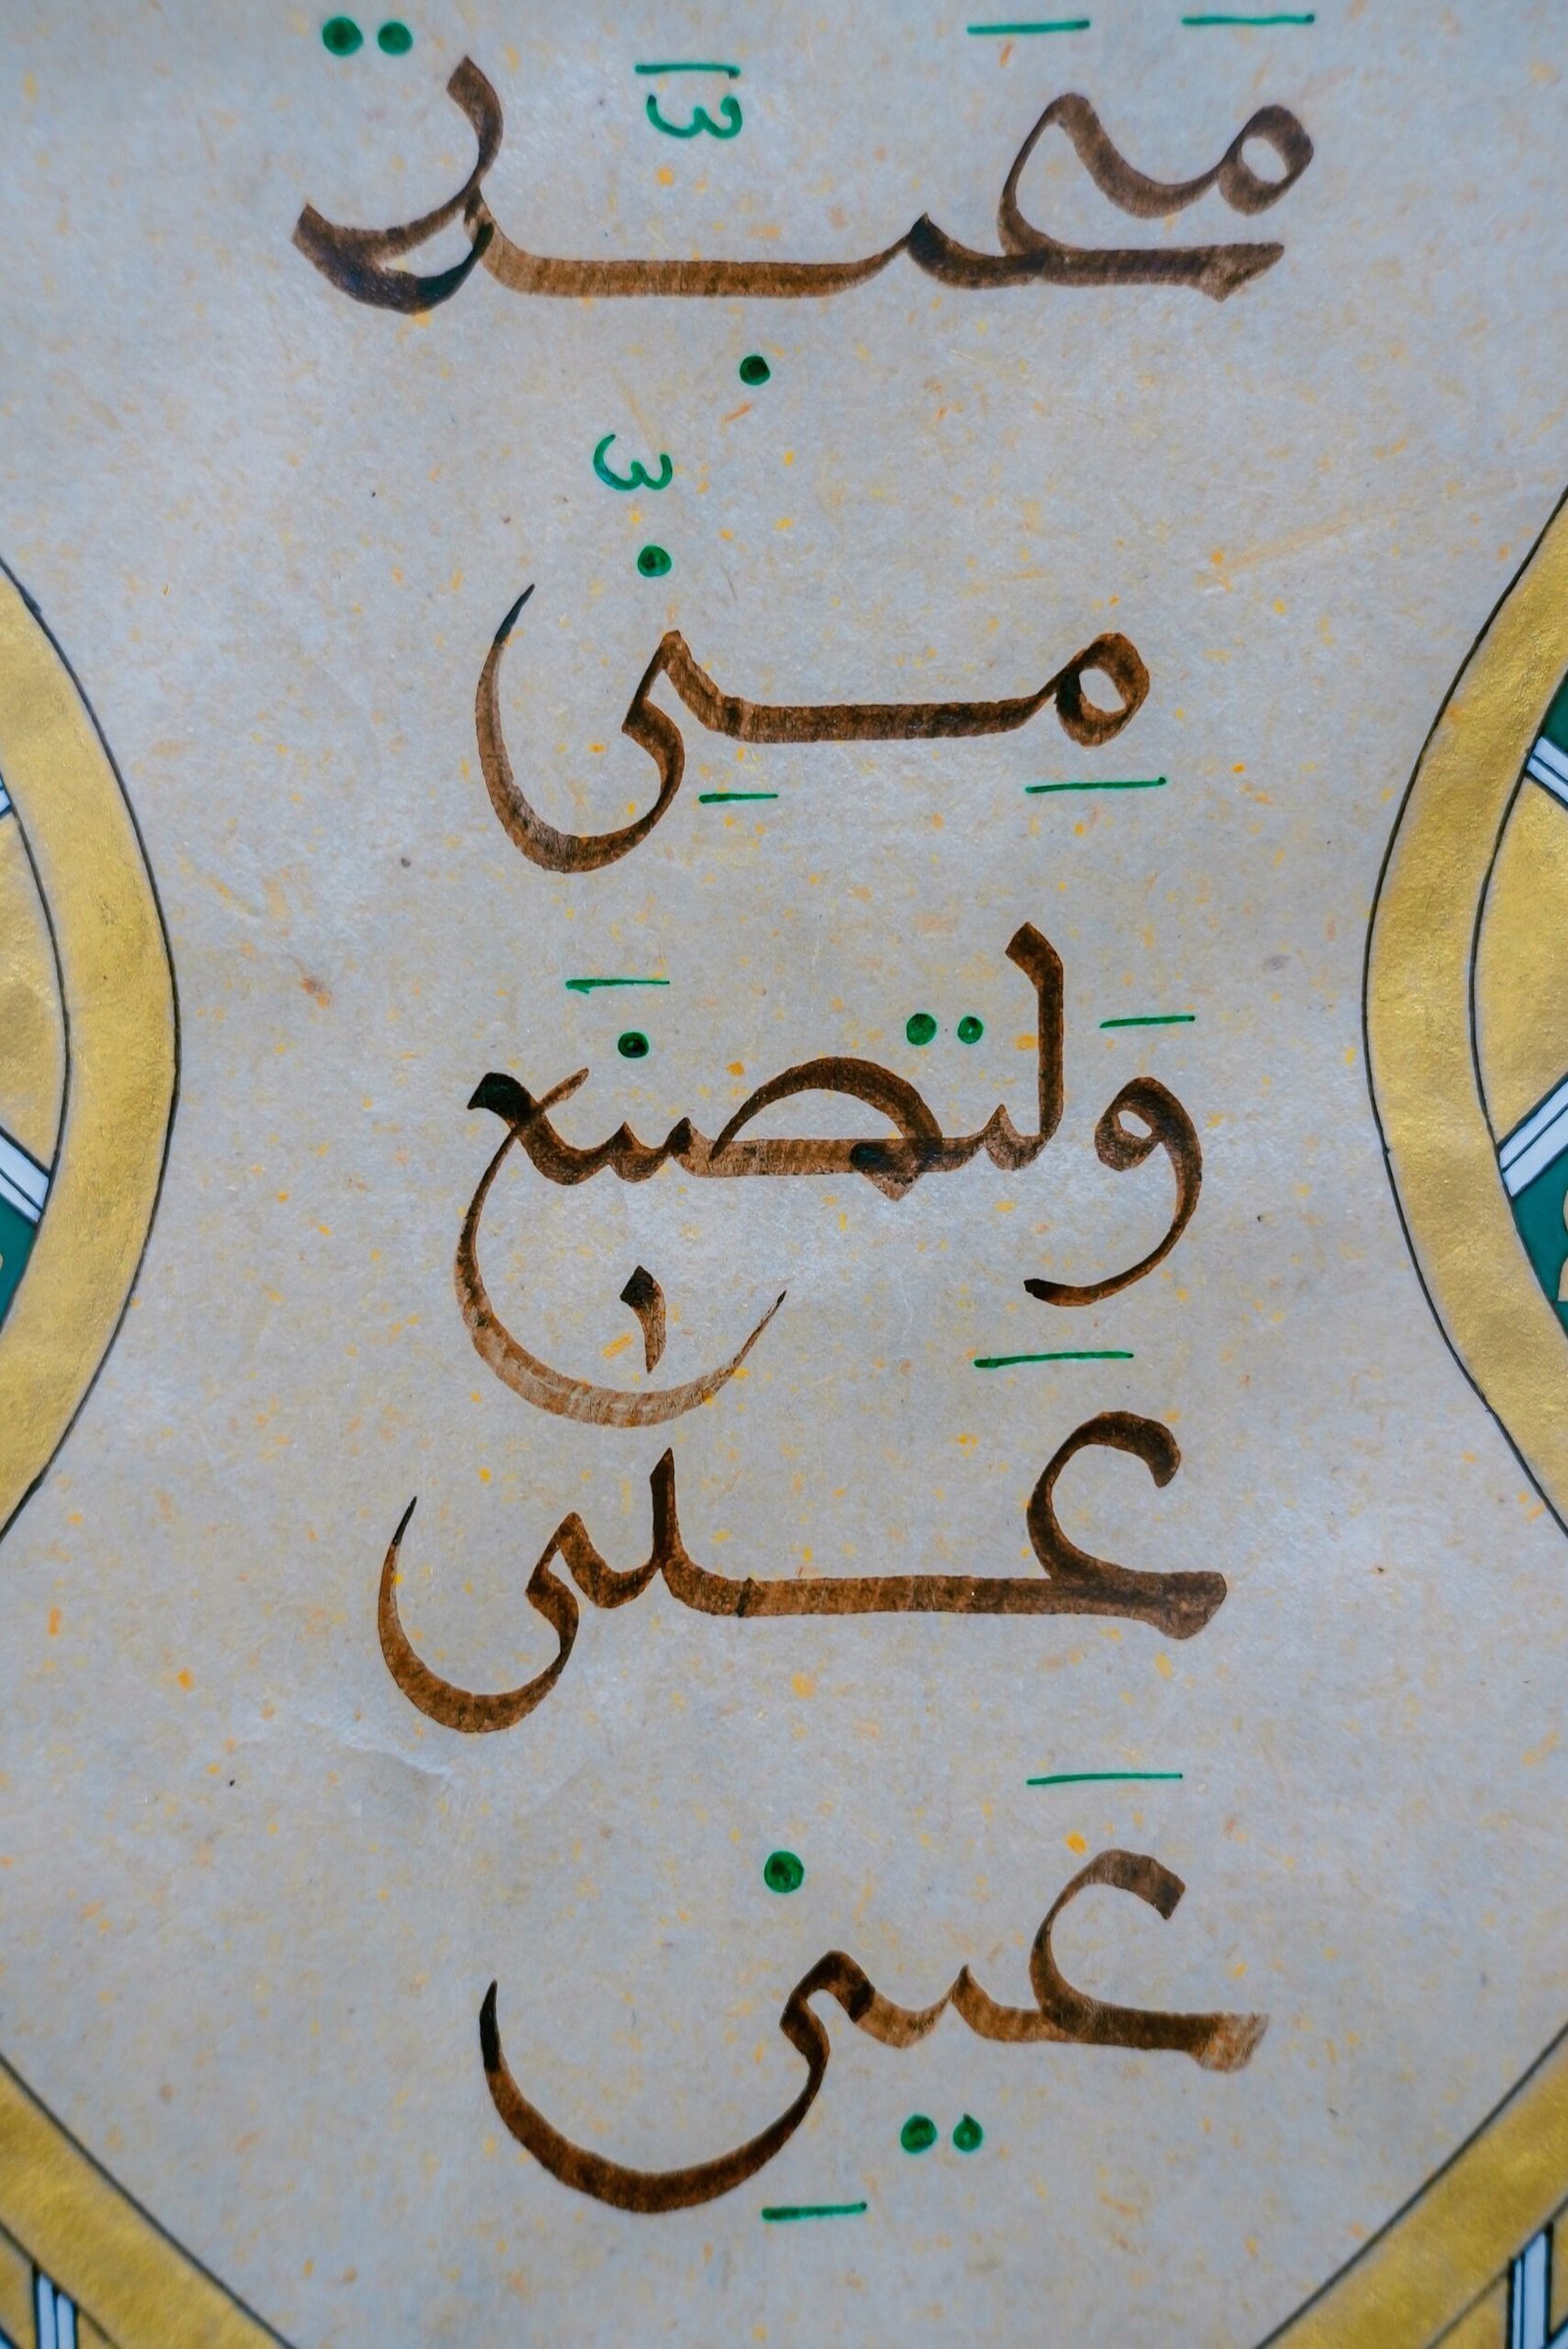 مَحَبَّة
مِنِّي
وَلِتصنَع
عَلىٰ
عَينِي